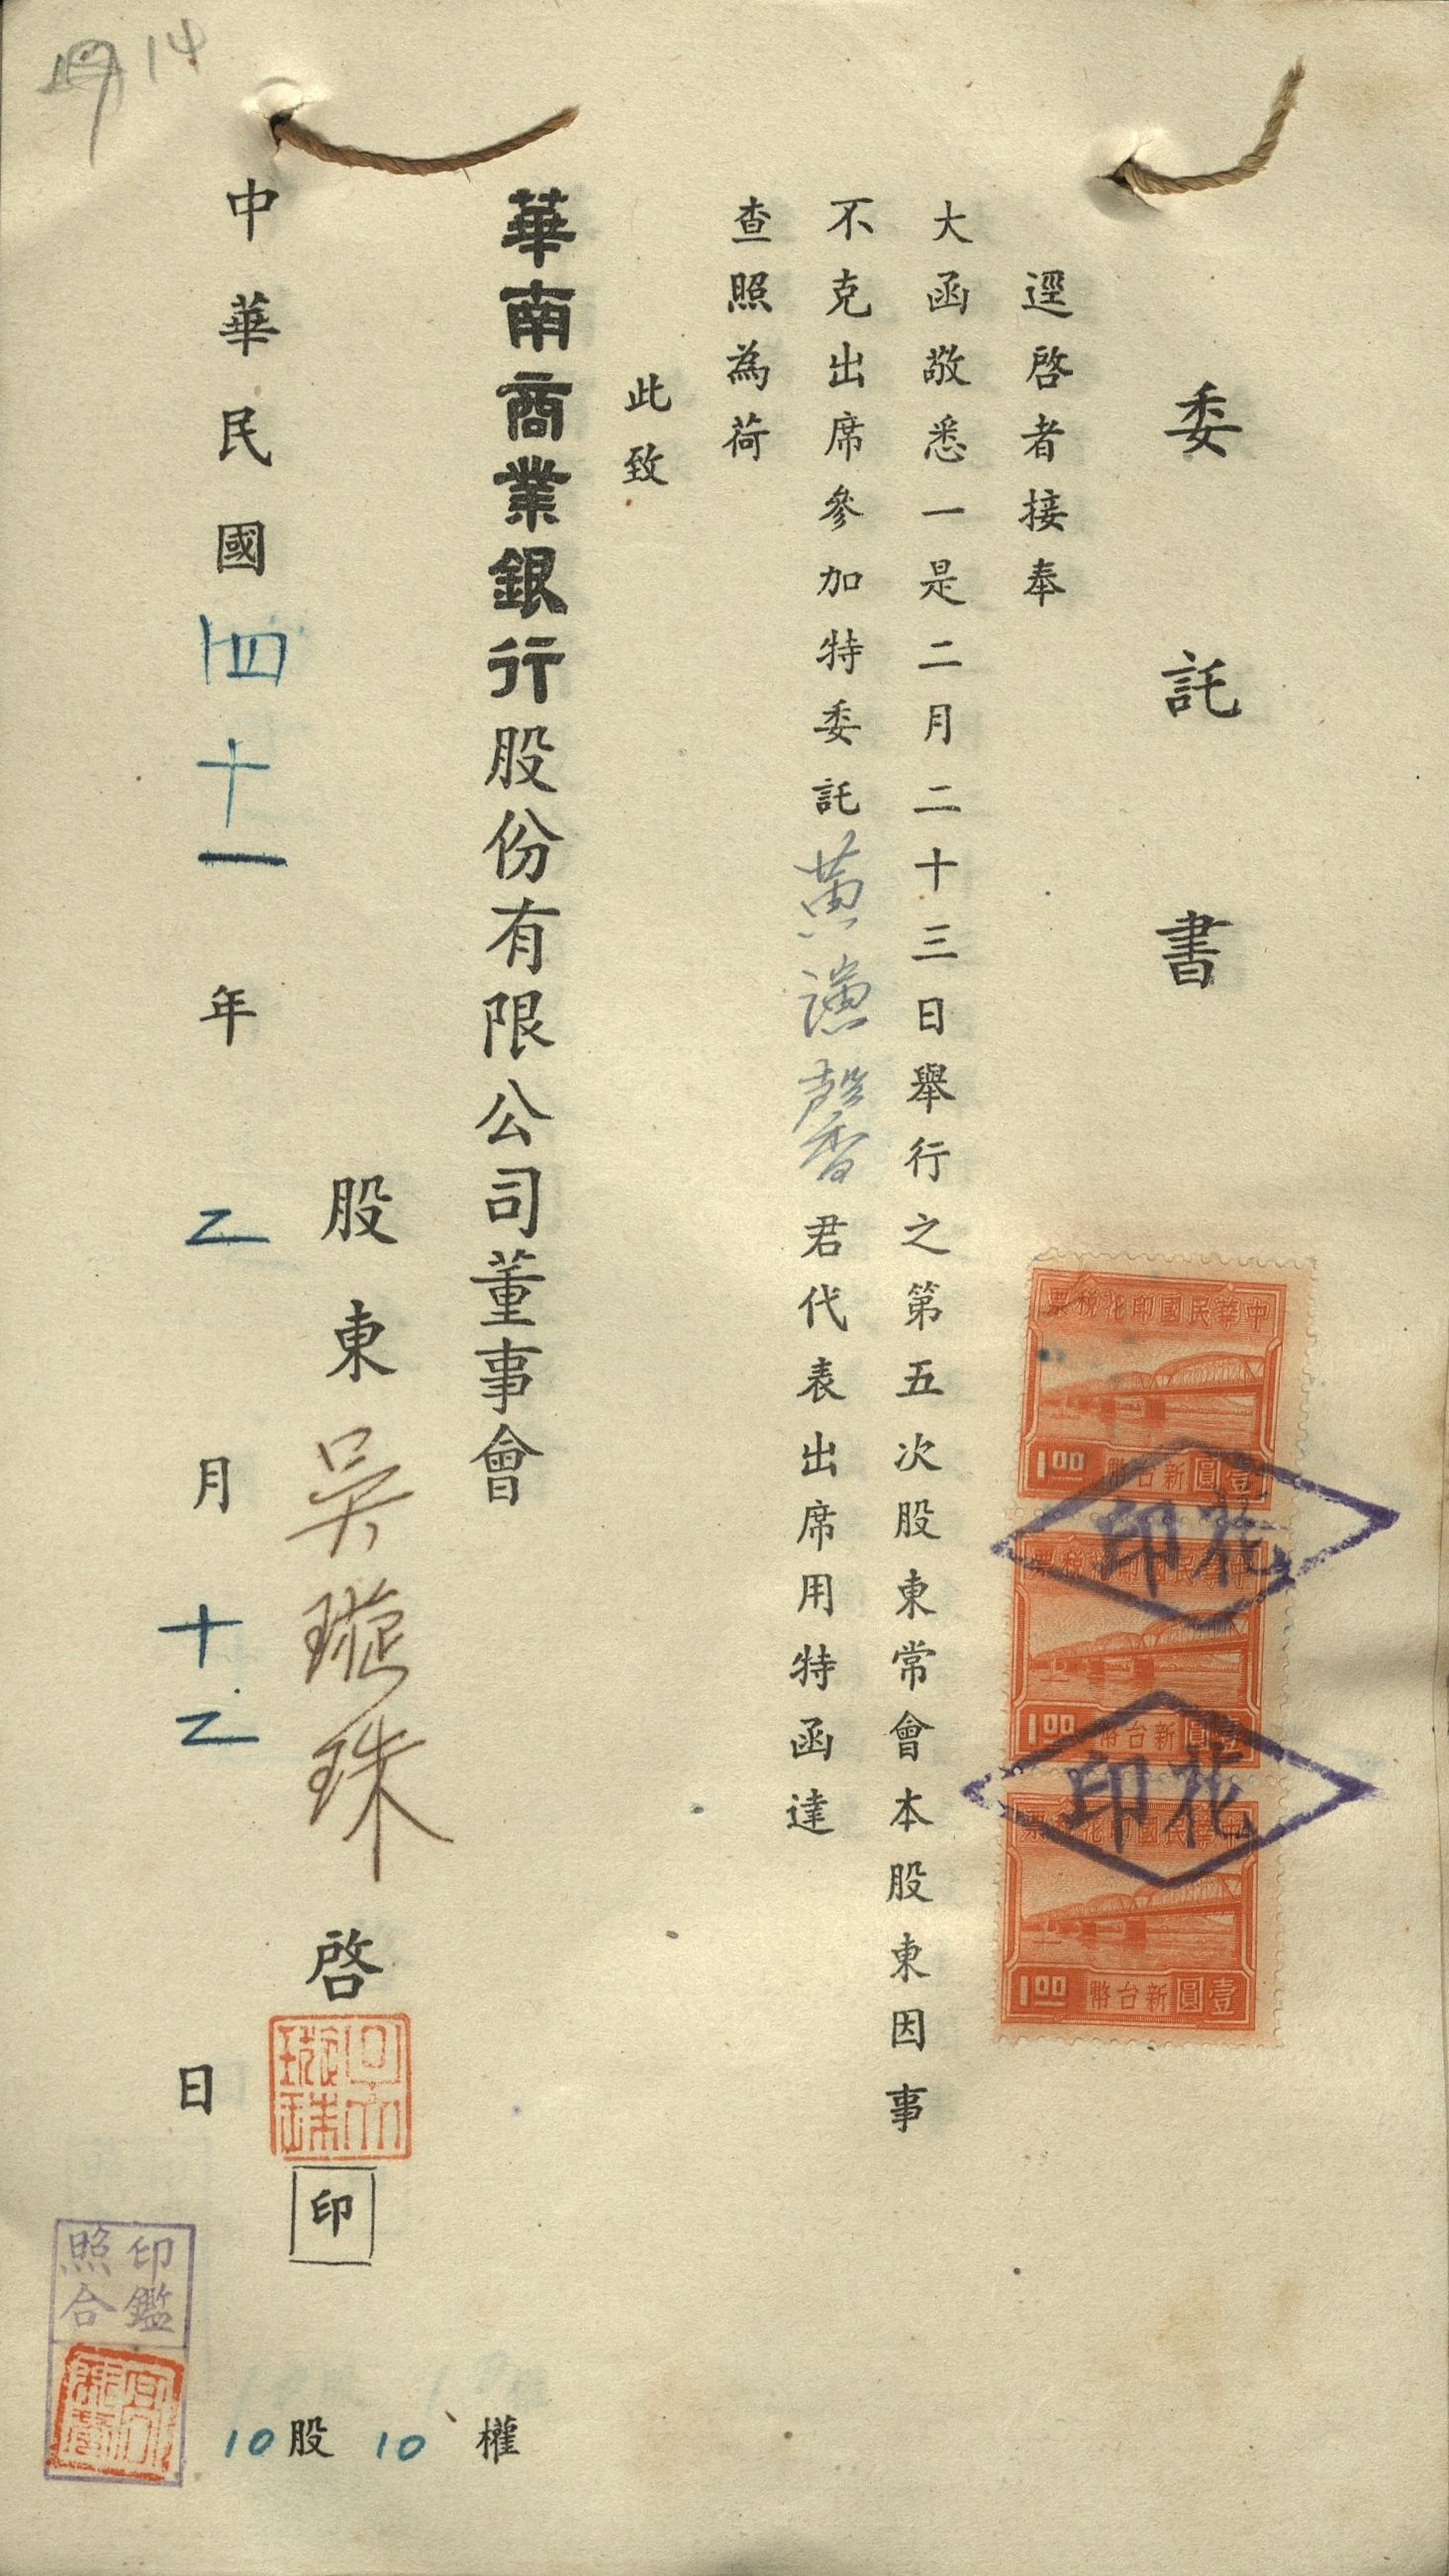 委託書
逕啓者接奉
大函敬悉一是二月二十三日舉行之第五次股東常會本股東因事
不克出席參加特委託黃謙馨君代表出席用特函達
查照為荷
此致
華南商業銀行股份有限公司董事會
股東吳璇珠啓
印
中華民國四十一年乙月十乙日
10股10權
中華民國印花稅票
1.00 壹圓新台幣
中華民國印花稅票
1.00 壹圓新台幣
中華民國印花稅票
1.00 壹圓新台幣
印花
印花
吳璇珠
印鑑
照合
14